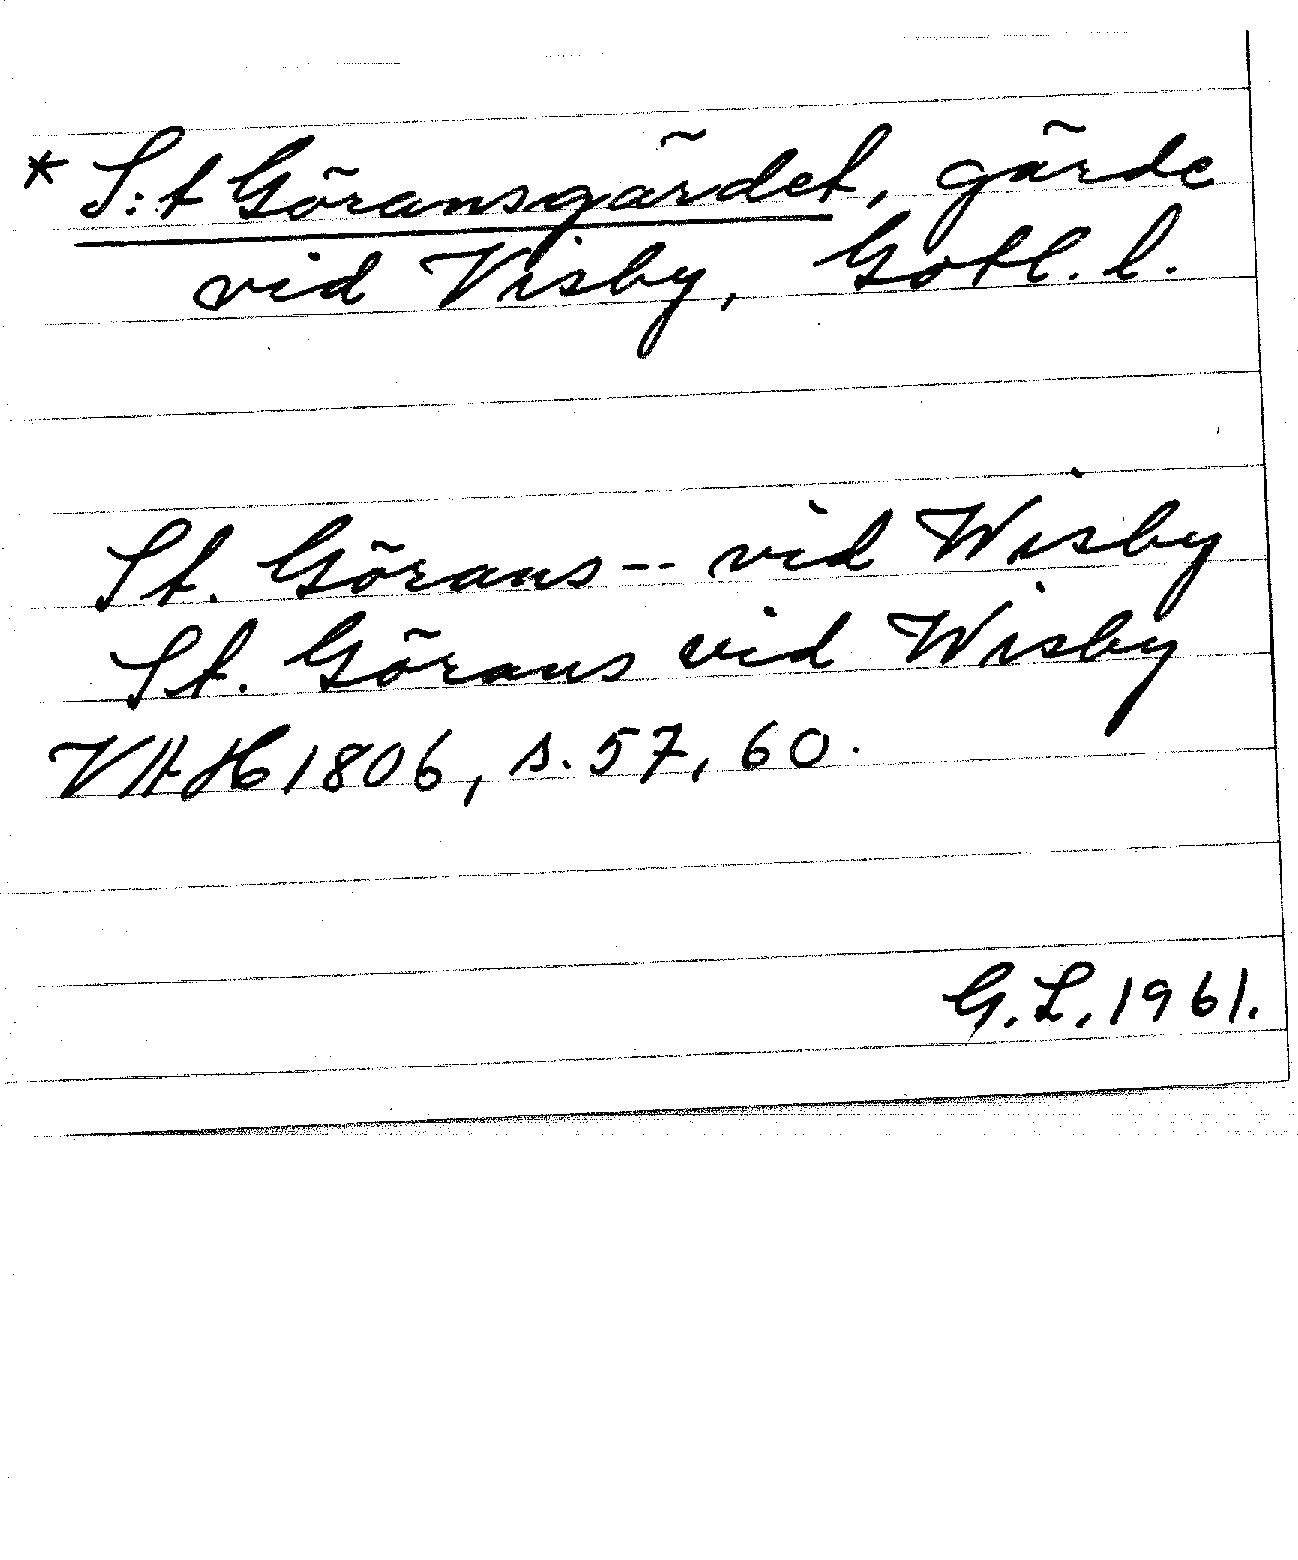 * S:t Göransgärdet, gärde
vid Visby, Gotl. l.
St. Görans -- vid Wisby
St. Görans vid Wisby
VAH 1806, s. 57, 60.
G.L. 1961.